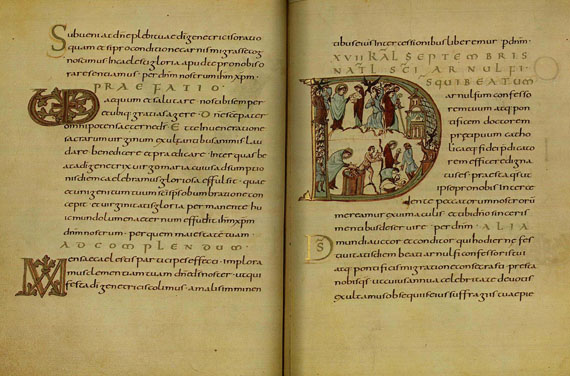 Subveniat dne plebi tuae di genetricis oratio
quam etsi pro conditione carnis migrasse cog
noscimus in caelesti gloria apud te pro nobis o
rare sentiamus per dnm nostrum ihm xpm
PRAEFATIO
aequum et salutare nos tibi semper
et ubique gratias agere dne sce pater
omnipotens aeterne ds Et te in veneratione
sacrarum virginum exultantibus animis lau
dare benedicere et praedicare inter quas be
ata di genetrix virgo maria cuius adsumptio
nis diem celebramus gloriosa effulsit quae
et unigenitum tuum sci sps obumbratione con
cepit et virginitatis gloria permanente hu
ic mundo lumen aeternum effudit ihm xpm
dnm nostrum per quem maiestatem tuam
AD COMPLENDUM
Mensae caelestis participes effecti implora
mus clementiam tuam dne ds noster ut qui
festa di genetricis colimus a malis imminen
tibus eius intercessionibus liberemur p dnm
XVII KAL SEPTEMBRIS
NATL SCI ARNULFI
DS QUI BEATUM
arnulfum confesso
rem tuum atq pon
tificem doctorem
praecipuum catho
licaeq fidei praedicato
rem efficere digna
tus es praesta qs ut
ipso pro nobis interce
dente peccatorum nostrorum
mereamur exui maculis et tibi dno sinceris
mentibus deservire per dnm ALIA
DS mundi auctor et conditor qui hodiernae fes
tivitatis diem beati arnulfi confessoris tui
atq pontificis migratione consecrasti praesta
nobis qs ut cuius annua celebritate devotis
exultamus obsequiis eius suffragiis tuae pie